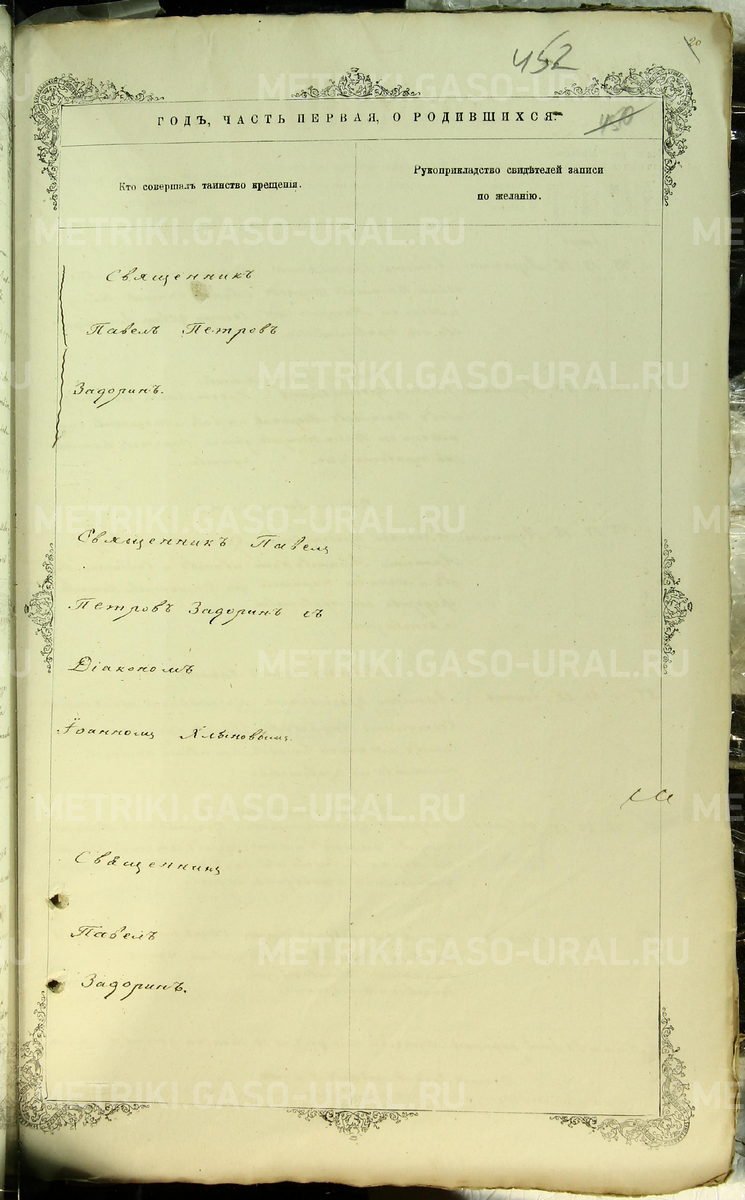 452
20
ГОДЪ, ЧАСТЬ ПЕРВАЯ, О РОДИВШИХСЯ
450
Кто совершалъ таинство крещенія.
Рукоприкладство свидѣтелей записи
по желанію.
Священникъ
Павелъ Петровъ
Задоринъ.
Священникъ Павелъ
Петровъ Задоринъ съ
Діакономъ
Іоанномъ Хлыновымъ
Священникъ
Павелъ
Задоринъ.
METRIKI.GASO-URAL.RU